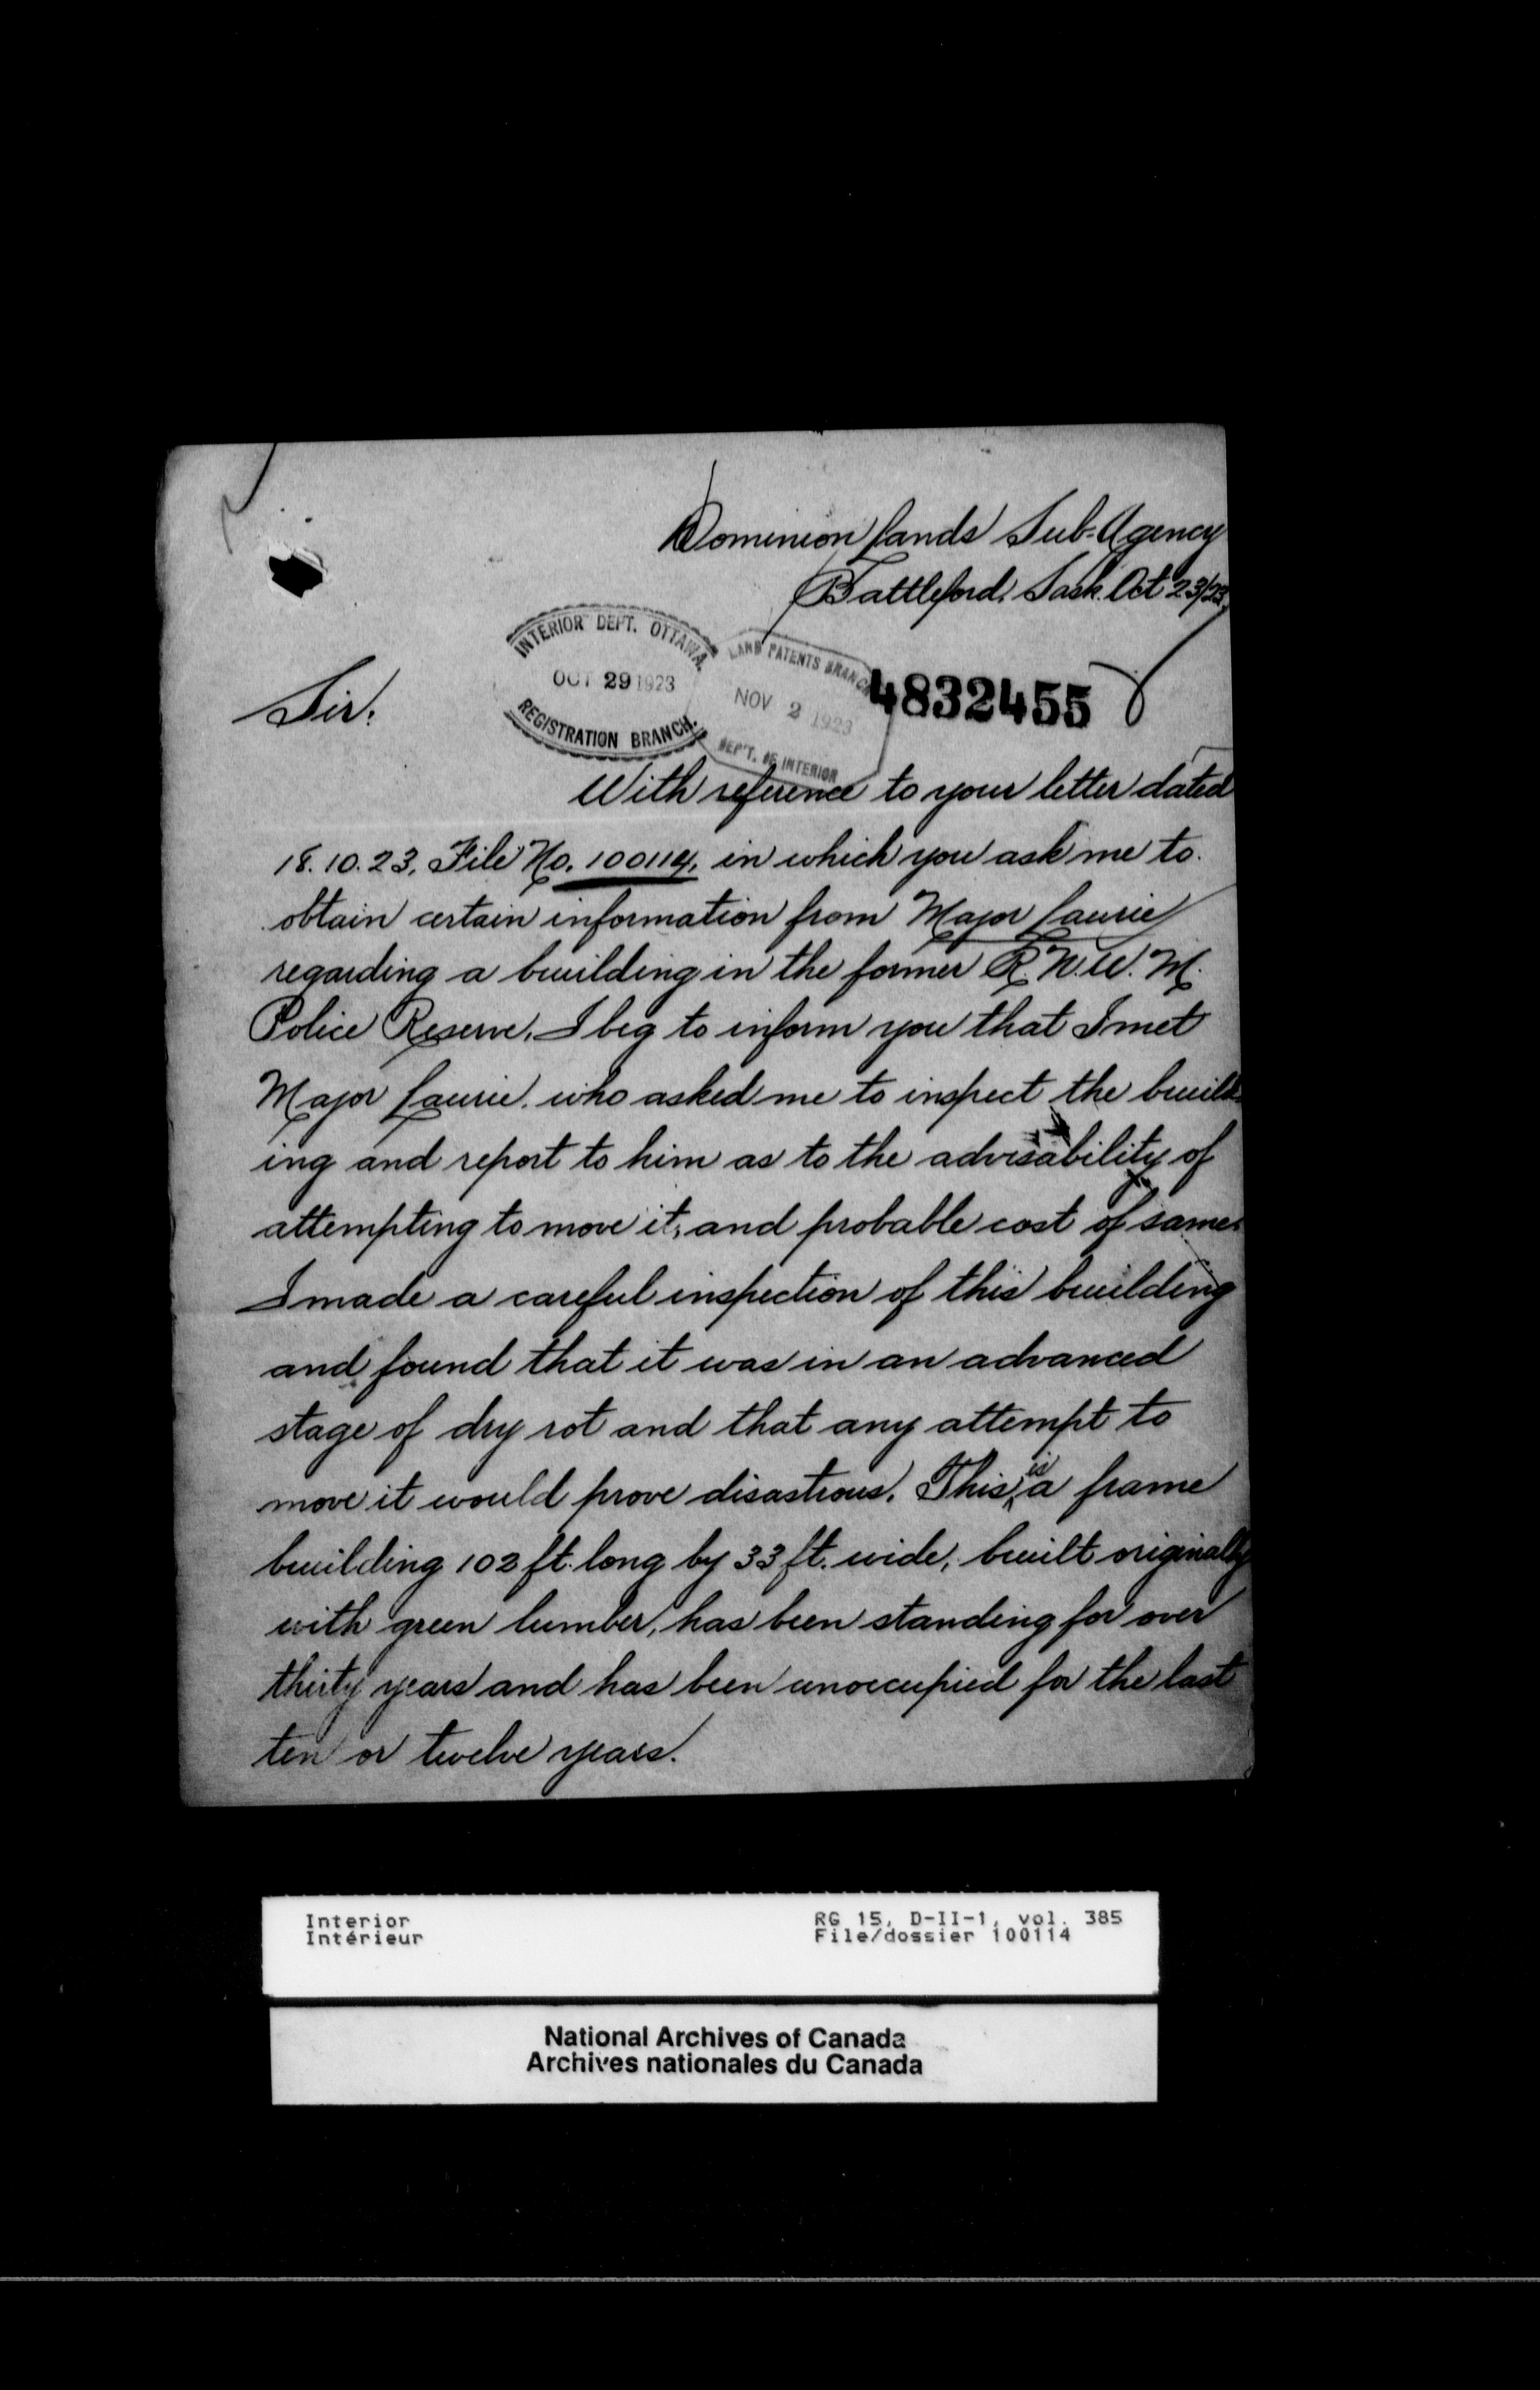 Dominion Lands Sub-Agency
Battleford, Sask. Oct 23/23.
INTERIOR DEPT. OTTAWA.
OCT 29 1923
REGISTRATION BRANCH.
LAND PATENTS BRANCH
NOV 2 1923
DEP'T. OF INTERIOR
4832455
Sir:
With reference to your letter dated
18.10.23, File No. 100114, in which you ask me to
obtain certain information from Major Laurie
regarding a building in the former R.N.W.M.
Police Reserve, I beg to inform you that I met
Major Laurie, who asked me to inspect the build-
ing and report to him as to the advisability of
attempting to move it, and probable cost of same.
I made a careful inspection of this building
and found that it was in an advanced
stage of dry rot and that any attempt to
move it would prove disastrous. This is a frame
building 102 ft. long by 33 ft. wide, built originally
with green lumber, has been standing for over
thirty years and has been unoccupied for the last
ten or twelve years.
Interior
Intérieur
RG 15, D-II-1, vol. 385
File/dossier 100114
National Archives of Canada
Archives nationales du Canada